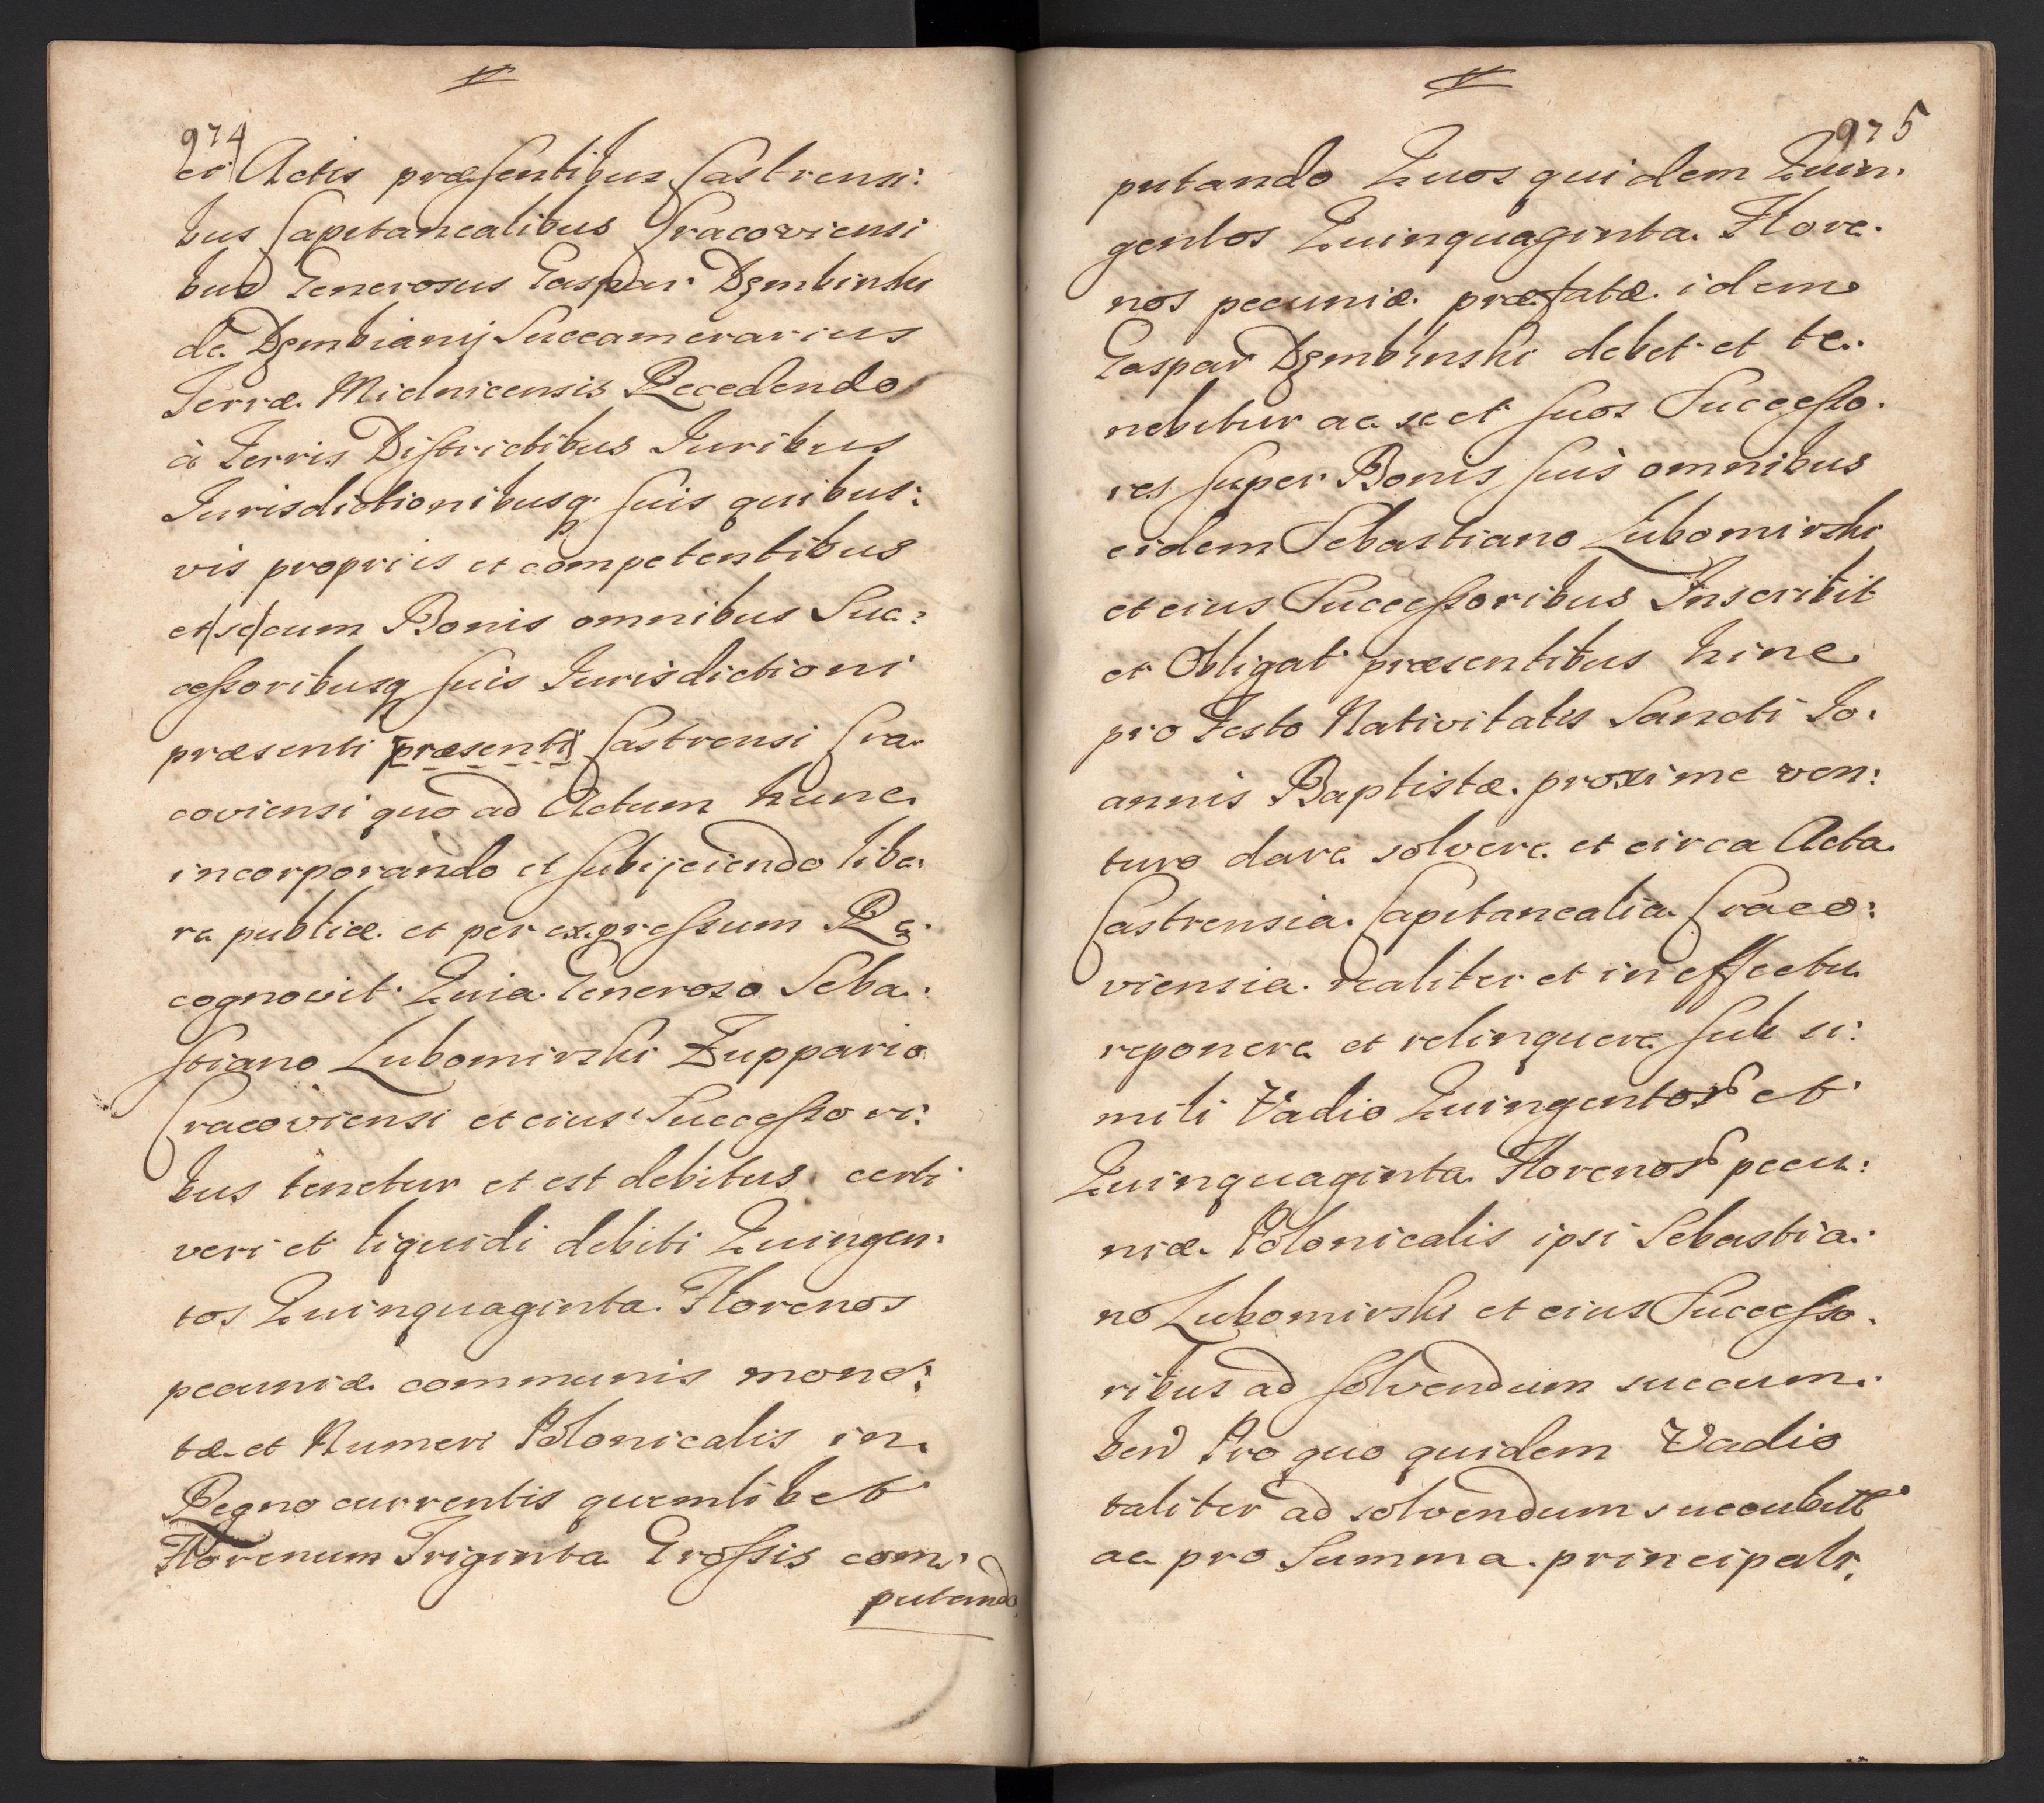 974
et Actis præsentibus Castrensi:
bus Capitanealibus Cracoviensi
bus Generosus Gaspar Dembinski
de Dembiany Succamerarius
Terræ Mielnicensis Recedendo
à Terris Districtibus Iuribus
Iurisdictionibusq suis quibus:
vis propriis et competentibus
et se cum Bonis omnibus Suc:
cessoribusq suis Iurisdictioni
præsenti præsenti Castrensi Cra
coviensi quo ad Actum hunc
incorporando et subijciendo libe:
re publice et per expressum Re
cognovit Quia Generoso Seba:
stiano Lubomirski Zuppario
Cracoviensi et eius Successori:
bus tenetur et est debitus certi
veri et liquidi debiti Quingen:
tos Quinquaginta Florenos
pecuniæ communis mone:
tæ et Numeri Polonicalis in
Regno currentis quemlibet
Florenum Triginta Grossis com:
putando
975
putando Quos quidem Quin.
gentos Quinquaginta Flore.
nos pecuniæ præfatæ idem
Gaspar Dembinski debet et te.
nebitur ac se et suos Successo.
res super Bonis suis omnibus
eidem Sebastiano Lubomirski
et eius Successoribus Inscribit
et Obligat præsentibus hinc
pro Festo Nativitatis Sancti Io.
annis Baptistæ proxime ven:
turo dare solvere et circa Acta
Castrensia Capitanealia Craco:
viensia realiter et in effectu
reponere et relinquere sub si:
mili Vadio Quingentor et
Quinquaginta Florenor pecu:
niæ Polonicalis ipsi Sebastia:
no Lubomirski et eius Successo.
ribus ad solvendum succum.
ben Pro quo quidem Vadio
taliter ad solvendum succubitt
ac pro Summa principali